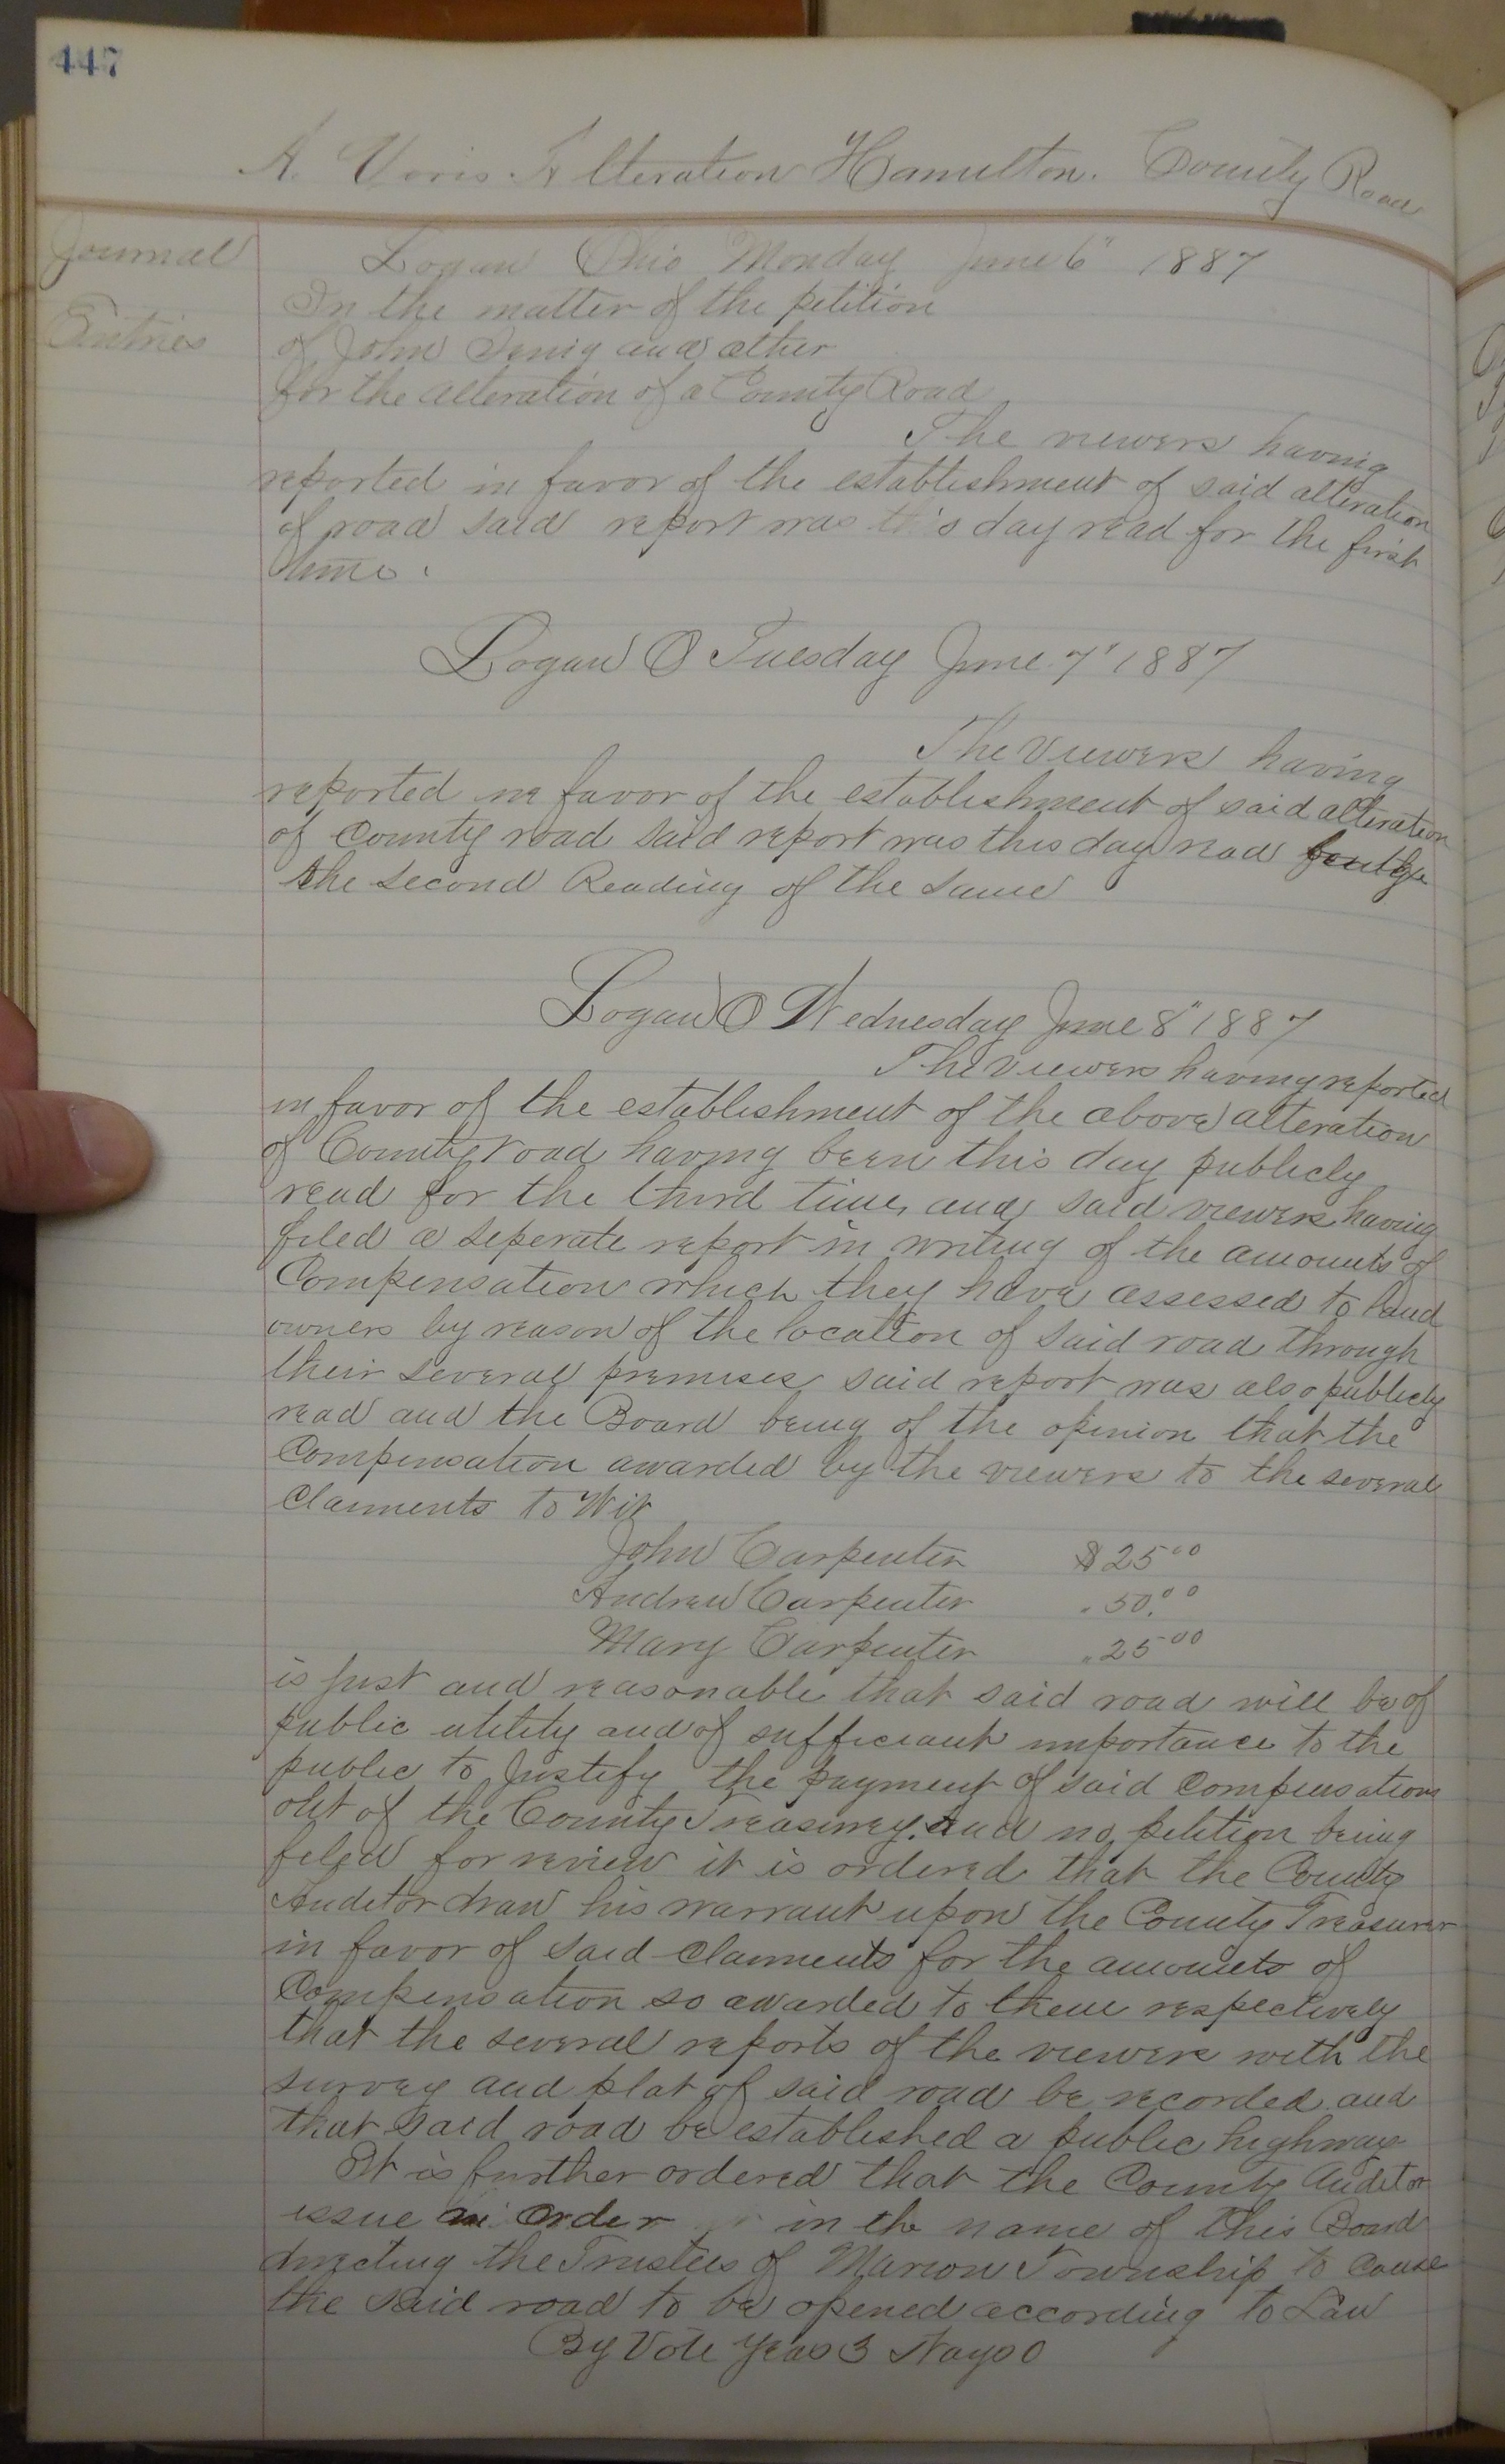 447
A. Voris Alteration Hamilton. County Road
Journal
Entries
Logan Ohio Monday June 6" 1887
In the matter of the petition
of John and other
for the alteration of a County Road
The viewers having
reported in favor of the establishment of said alteration
of road said report was this day read for the first
time.
Logan O Tuesday June 7" 1887
The Viewers having
reported in favor of the establishment of said alteration
of County road said report was this day read
the second Reading of the same
Logan O Wednesday June 8" 1887
The Viewers having reported
in favor of the establishment of the above alteration
of County road having been this day publicly
read for the third time, and said viewers having
filed a seperate report in writing of the amounts of
Compensation which they have assessed to land
owners by reason of the location of said road through
their several premises said report was also publicly
read and the Board being of the opinion that the
Compensation awarded by the viewers to the several
Claiments to Wit
John Carpenter $25.00
Andrew Carpenter " 50.00
Mary Carpenter " 25.00
is just and reasonable that said road will be of
public utility and of sufficiant importance to the
public to Justify the payment of said Compensation
out of the County Treasurey. And no petition being
filed for review it is ordered that the County
Auditor draw his warrant upon the County Treasurer
in favor of said Claiments for the amounts of
Compensation so awarded to them respectively
that the several reports of the viewers with the
survey and plat of said road be recorded and
that said road be established a public highway
It is further ordered that the County Auditor
issue an order in the name of this Board
directing the Trustees of Marion Township to Cause
the said road to be opened according to Law
By Vote Yeas 3 Nays 0